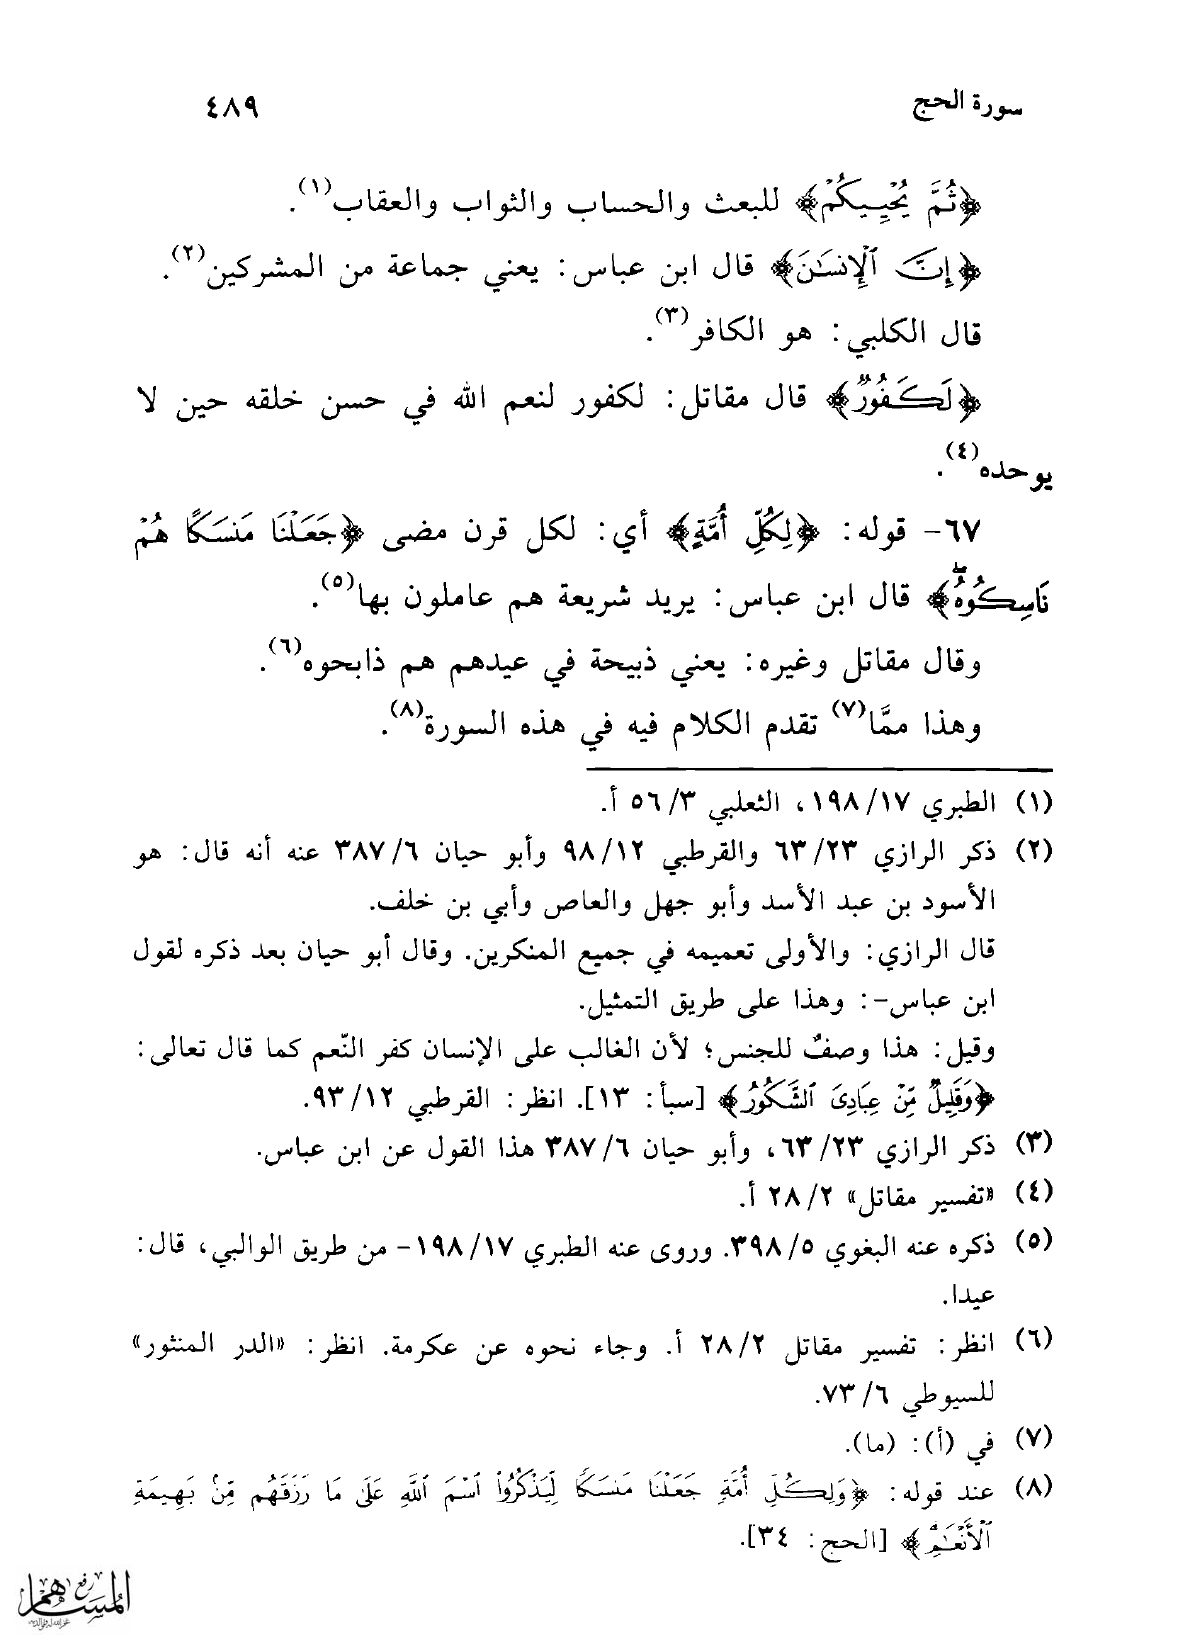 سورة الحج
٤٨٩
﴿ثُمَّ يُحْيِيكُمْ﴾ للبعث والحساب والثواب والعقاب(١).
﴿إِنَّ ٱلْإِنسَٰنَ﴾ قال ابن عباس: يعني جماعة من المشركين(٢).
قال الكلبي: هو الكافر(٣).
﴿لَكَفُورٌ﴾ قال مقاتل: لكفور لنعم الله في حسن خلقه حين لا
يوحده(٤).
٦٧- قوله: ﴿لِكُلِّ أُمَّةٍ﴾ أي: لكل قرن مضى ﴿جَعَلْنَا مَنسَكًا هُمْ
نَاسِكُوهُ ۖ﴾ قال ابن عباس: يريد شريعة هم عاملون بها(٥).
وقال مقاتل وغيره: يعني ذبيحة في عيدهم هم ذابحوه(٦).
وهذا ممَّا(٧) تقدم الكلام فيه في هذه السورة(٨).
(١) الطبري ١٩٨/١٧، الثعلبي ٥٦/٣ أ.
(٢) ذكر الرازي ٦٣/٢٣ والقرطبي ٩٨/١٢ وأبو حيان ٣٨٧/٦ عنه أنه قال: هو
الأسود بن عبد الأسد وأبو جهل والعاص وأبي بن خلف.
قال الرازي: والأولى تعميمه في جميع المنكرين. وقال أبو حيان بعد ذكره لقول
ابن عباس-: وهذا على طريق التمثيل.
وقيل: هذا وصفٌ للجنس؛ لأن الغالب على الإنسان كفر النّعم كما قال تعالى:
﴿وَقَلِيلٌ مِّنْ عِبَادِىَ ٱلشَّكُورُ﴾ [سبأ: ١٣]. انظر: القرطبي ٩٣/١٢.
(٣) ذكر الرازي ٦٣/٢٣، وأبو حيان ٣٨٧/٦ هذا القول عن ابن عباس.
(٤) «تفسير مقاتل» ٢٨/٢ أ.
(٥) ذكره عنه البغوي ٣٩٨/٥. وروى عنه الطبري ١٩٨/١٧- من طريق الوالبي، قال:
عيدا.
(٦) انظر: تفسير مقاتل ٢٨/٢ أ. وجاء نحوه عن عكرمة. انظر: «الدر المنثور»
للسيوطي ٧٣/٦.
(٧) في (أ): (ما).
(٨) عند قوله: ﴿وَلِكُلِّ أُمَّةٍ جَعَلْنَا مَنسَكًا لِّيَذْكُرُواْ ٱسْمَ ٱللَّهِ عَلَىٰ مَا رَزَقَهُم مِّنۢ بَهِيمَةِ
ٱلْأَنْعَٰمِ ۗ﴾ [الحج: ٣٤].